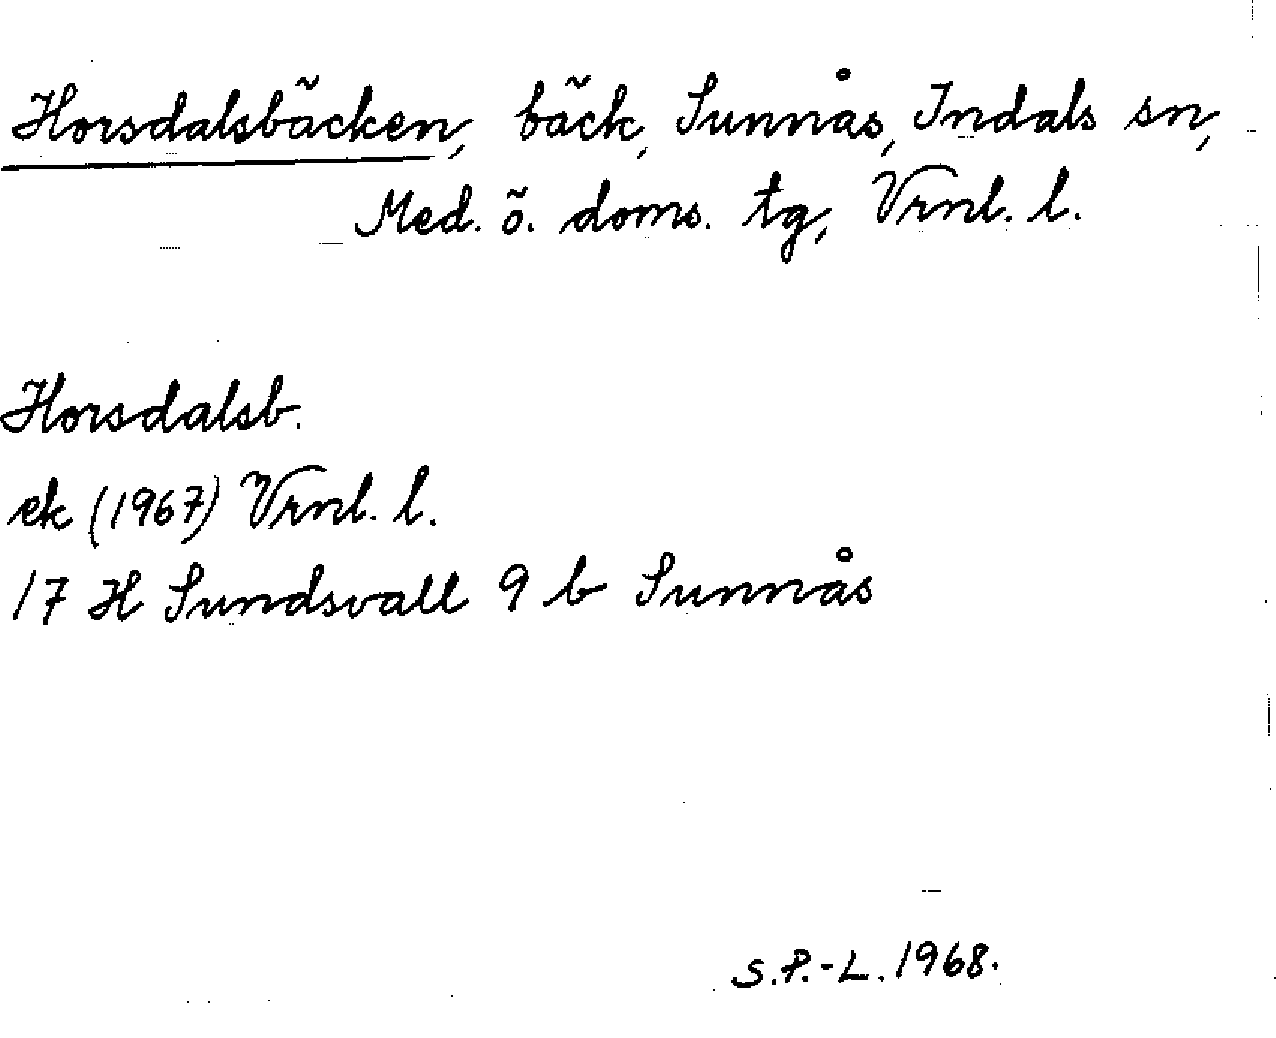 Horsdalsbäcken, bäck, Sunnås, Indals sn,
Med. ö. doms. tg, Vrnl. l.
Horsdalsb.
ek (1967) Vrnl. l.
17 H Sundsvall 9 b Sunnås
S.P.-L. 1968.